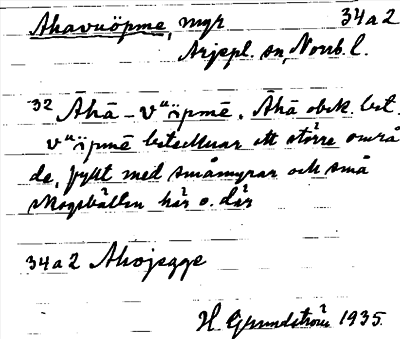 Akavuöpme, myr 34a2
Arjepl. sn, Norrb. l.
32 Āhā - vᵘöpmē. Āhā obek. bet.
vᵘöpmē betecknar ett större områ
de, fyllt med småmyrar och små
skogsbällen här o. där
34a2 Akajegge
H. Grundström 1935.